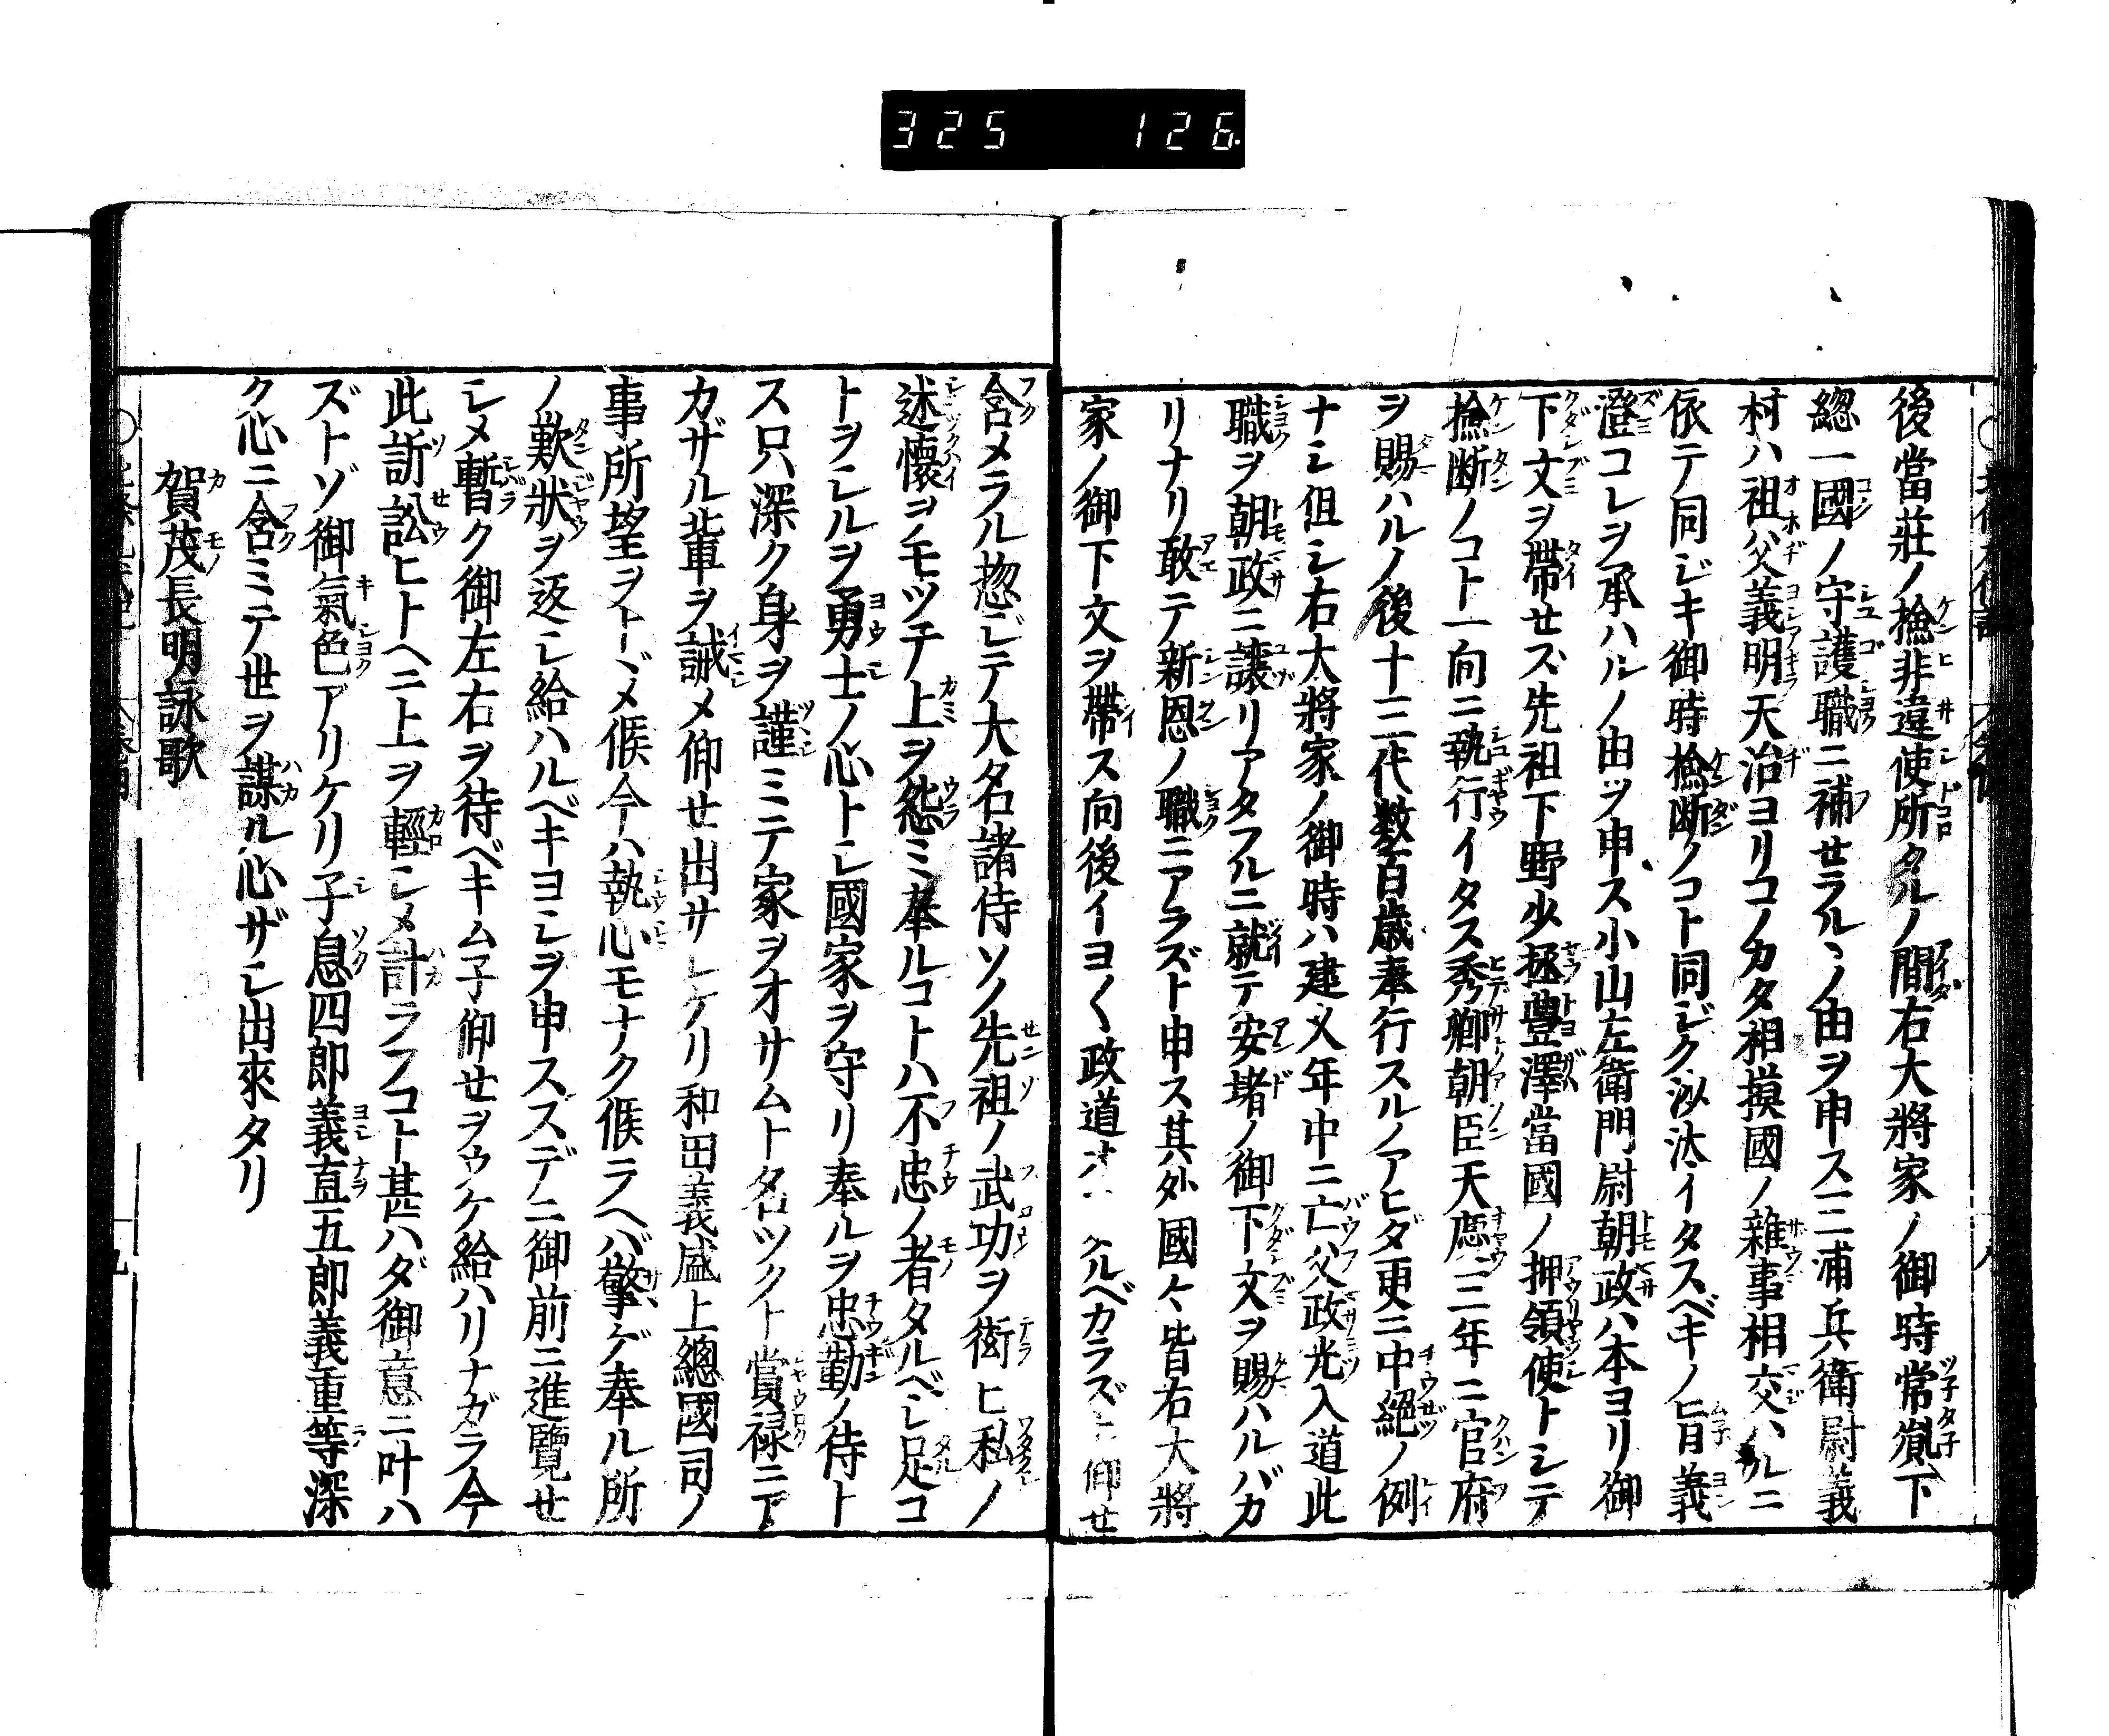 325 126
後當莊ノ撿非違使所タルノ間右大將家ノ御時常胤下
總一國ノ守護職ニ補せラルヽノ由ヲ申ス三浦兵衛尉義
村ハ祖父義明天治ヨリコノカタ相摸國ノ雜事相交ハルニ
依テ同ジキ御時撿断ノコト同ジク沙汰イタスベキノ旨義
澄コレヲ承ハルノ由ヲ申ス小山左衛門尉朝政ハ本ヨリ御
下文ヲ帶せズ先祖下野少掾豊澤當國ノ押領使トシテ
撿断ノコト一向ニ執行イタス秀郷朝臣天慶三年ニ官府
ヲ賜ハルノ後十三代数百歳奉行スルノアヒダ更ニ中絶ノ例
ナシ但シ右大將家ノ御時ハ建久年中ニ亡父政光入道此
職ヲ朝政ニ讓リアタフルニ就テ安堵ノ御下文ヲ賜ハルバカ
リナリ敢テ新恩ノ職ニアラズト申ス其外國々皆右大將
家ノ御下文ヲ帶ス向後イヨ〱政道 クルベカラズト仰せ
含メラル惣ジテ大名諸侍ソノ先祖ノ武功ヲ衒ヒ私ノ
述懷ヲノモツチ上ヲ怨ミ奉ルコトハ不忠ノ者タルベシ足コ
トヲシルヲ勇士ノ心トシ國家ヲ守リ奉ルヲ忠勤ノ侍ト
ス只深ク身ヲ謹ミテ家ヲオサムト名ツクト賞禄ニア
カザル輩ヲ誡メ仰せ出サレケリ和田義盛上總國司ノ
事所望ヲトヾメ候今ハ執心モナク候ラヘバ擎ゲ奉ル所
ノ歎狀ヲ返シ給ハルベキヨシヲ申スズデニ御前ニ進覽せ
シメ暫ク御左右ヲ待ベキム子仰せヲウケ給ハリナガラ今
此訢訟ヒトヘニ上ヲ輕シメ計ラフコト甚ハダ御意ニ叶ハ
ズトゾ御氣色アリケリ子息四郎義直五郎義重等深
ク心ニ含ミテ世ヲ謀ル心ザシ出來タリ
賀茂長明詠歌